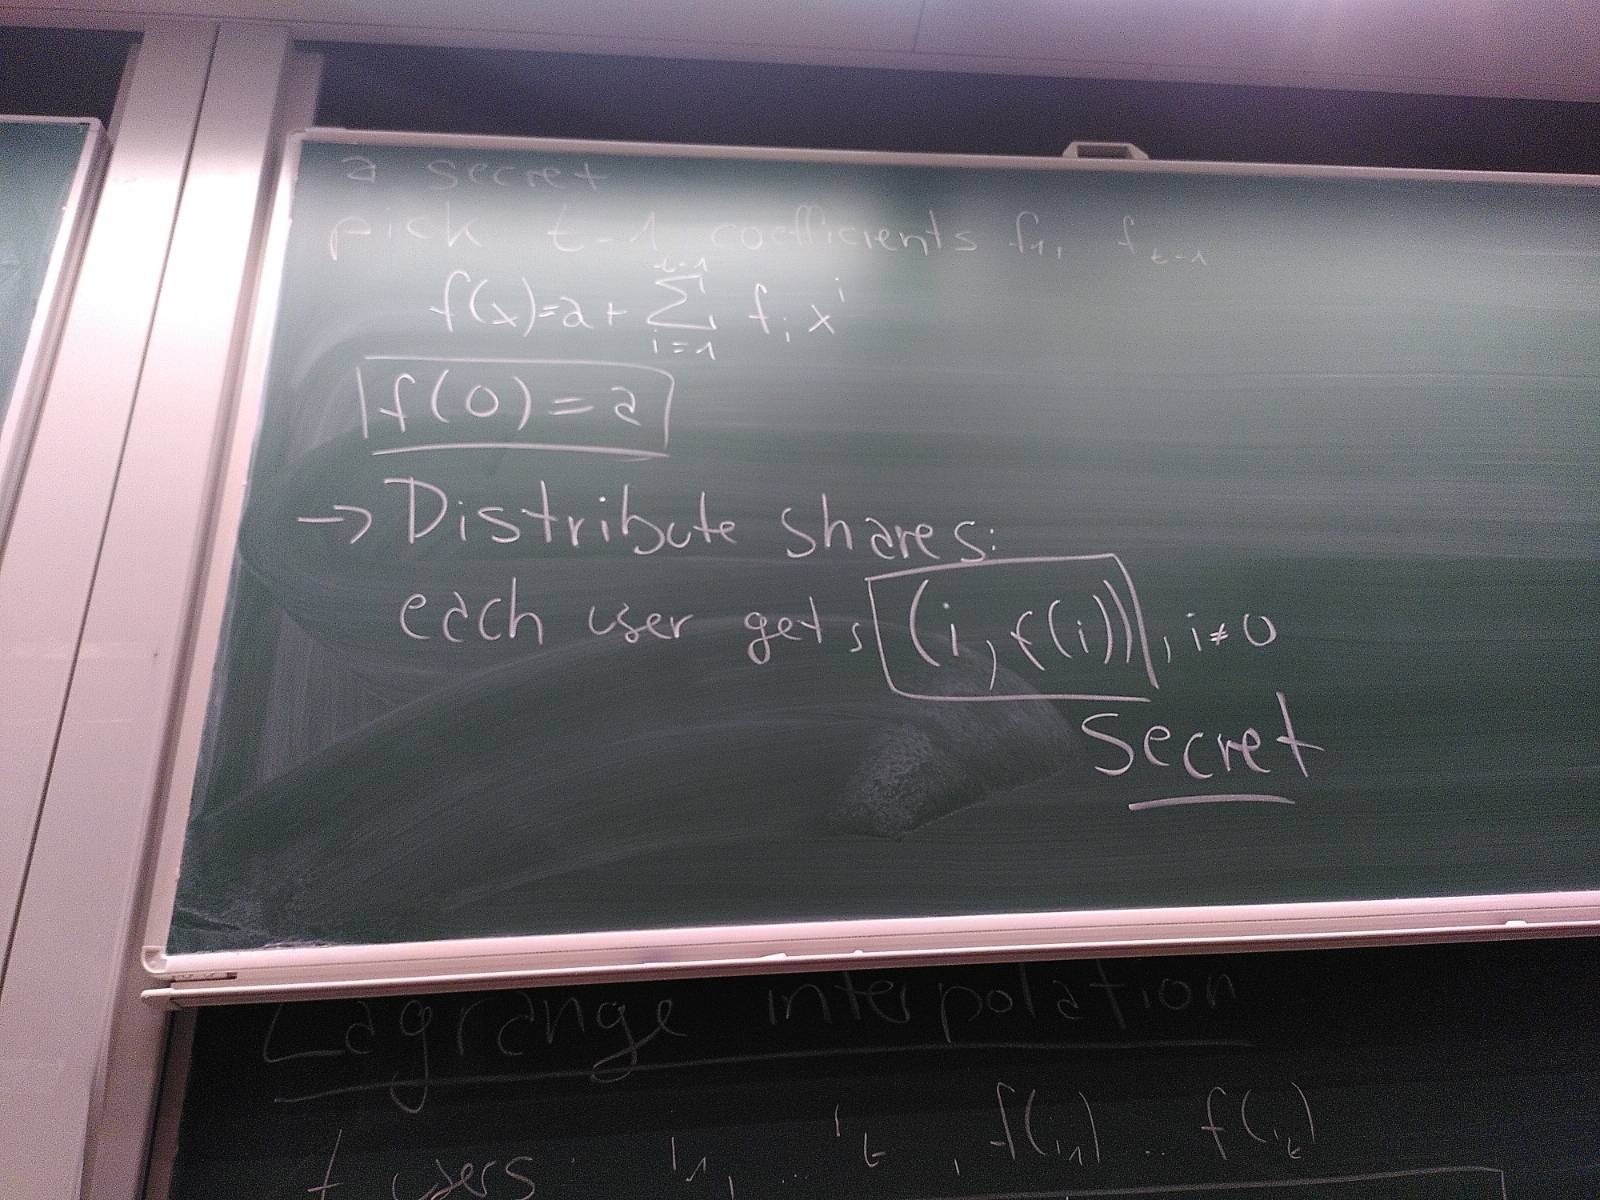 a secret
pick t-1 coefficients f₁, f_{t-1}
f(x)=a+ \sum_{i=1}^{t-1} f_i x^i
f(0)=a
→ Distribute shares:
each user gets (i, f(i)), i≠0
Secret
Lagrange interpolation
t users: i₁, ... i_t, f(i₁) .. f(i_t)